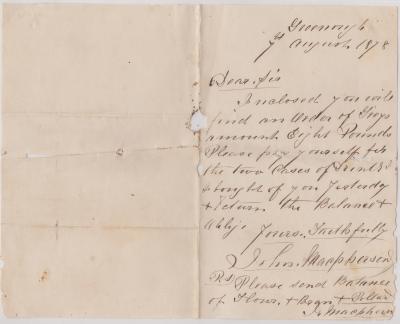 Greenough
7th August 1878
Dear Sir
Inclosed you will
find an Order of Grays
amount Eight Pounds
Please pay yourself for
the two Cases of I
bought of you Yesterday
& Return the Balance &
oblige
Yours Faithfully
John Macpherson
PS Please send Balance
of Flour & Bran &
J. Macpherson